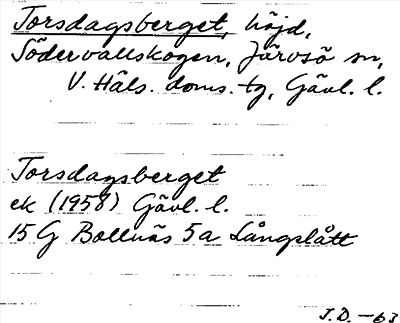 Torsdagsberget, höjd,
Södervallskogen, Järvsö sn,
V. Häls. doms. tg, Gävl. l.
Torsdagsberget
ek (1958) Gävl. l.
15 G Bollnäs 5a Långslått
J.D. -63